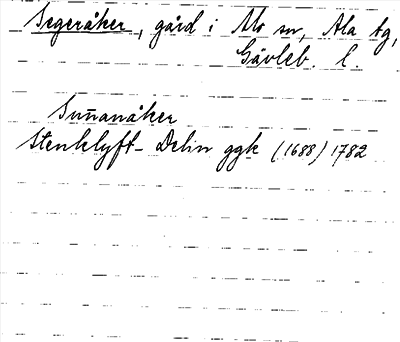 Segeråker, gård i Mo sn, Ala tg,
Gävleb. l.
Sunnanåker
Stenklyft-Dehn ggk (1688) 1782